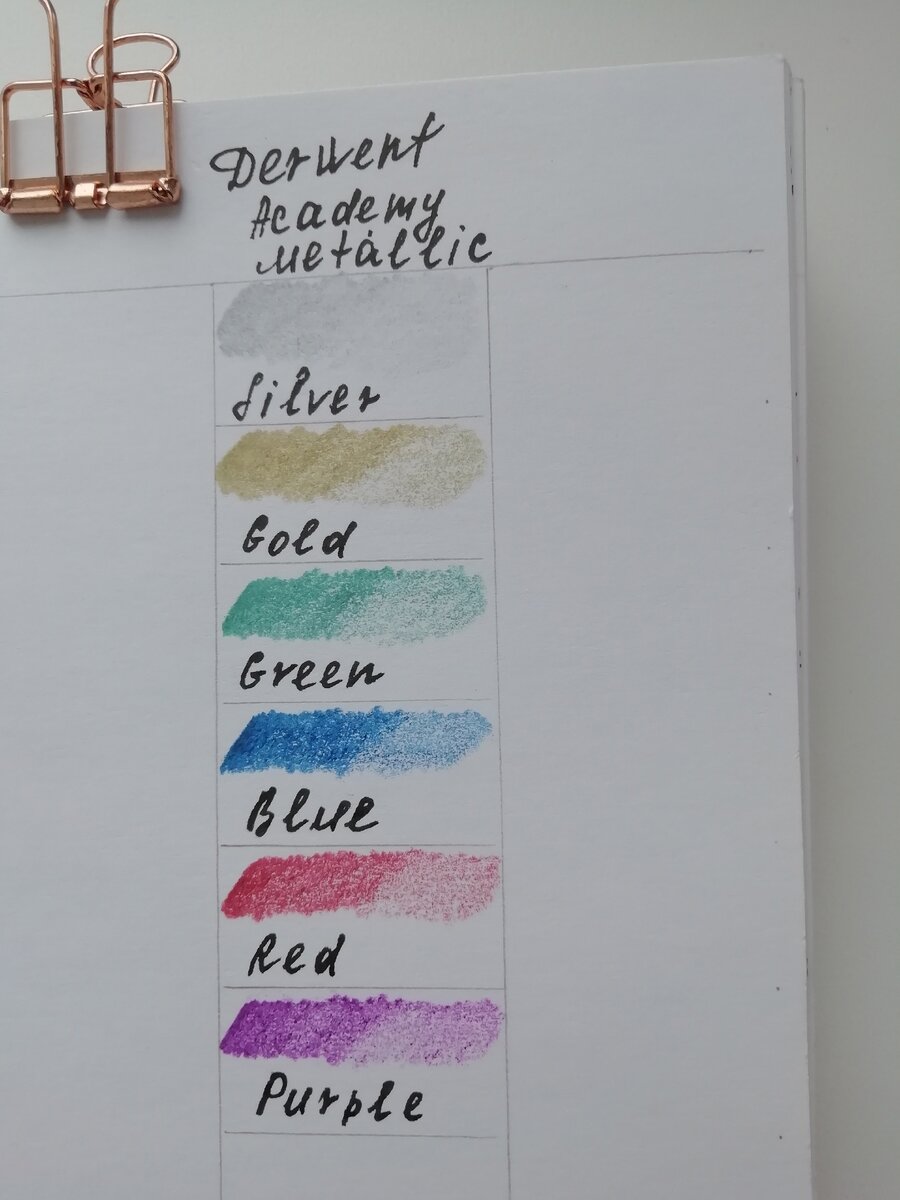 Derwent
Academy
Metallic
Silver
Gold
Green
Blue
Red
Purple